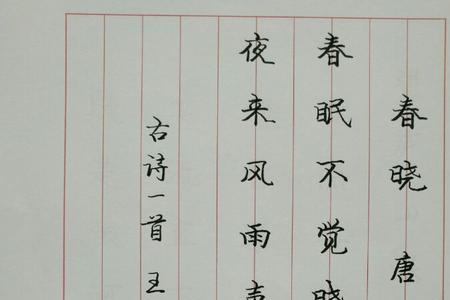 春晓 唐
春眠不觉晓
夜来风雨声
古诗一首 王